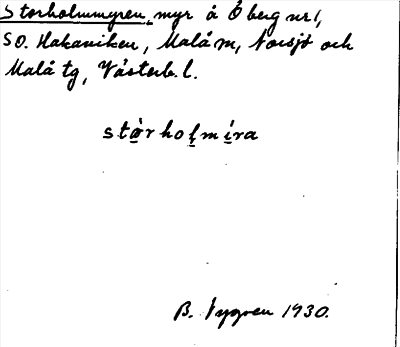 Storholmmyren, myr å Öberg nr 1,
SO. Hakaviken, Malå m, Norsjö och
Malå tg, Västerb. l.
stὰrhoļmíra
B. Nygren 1930.